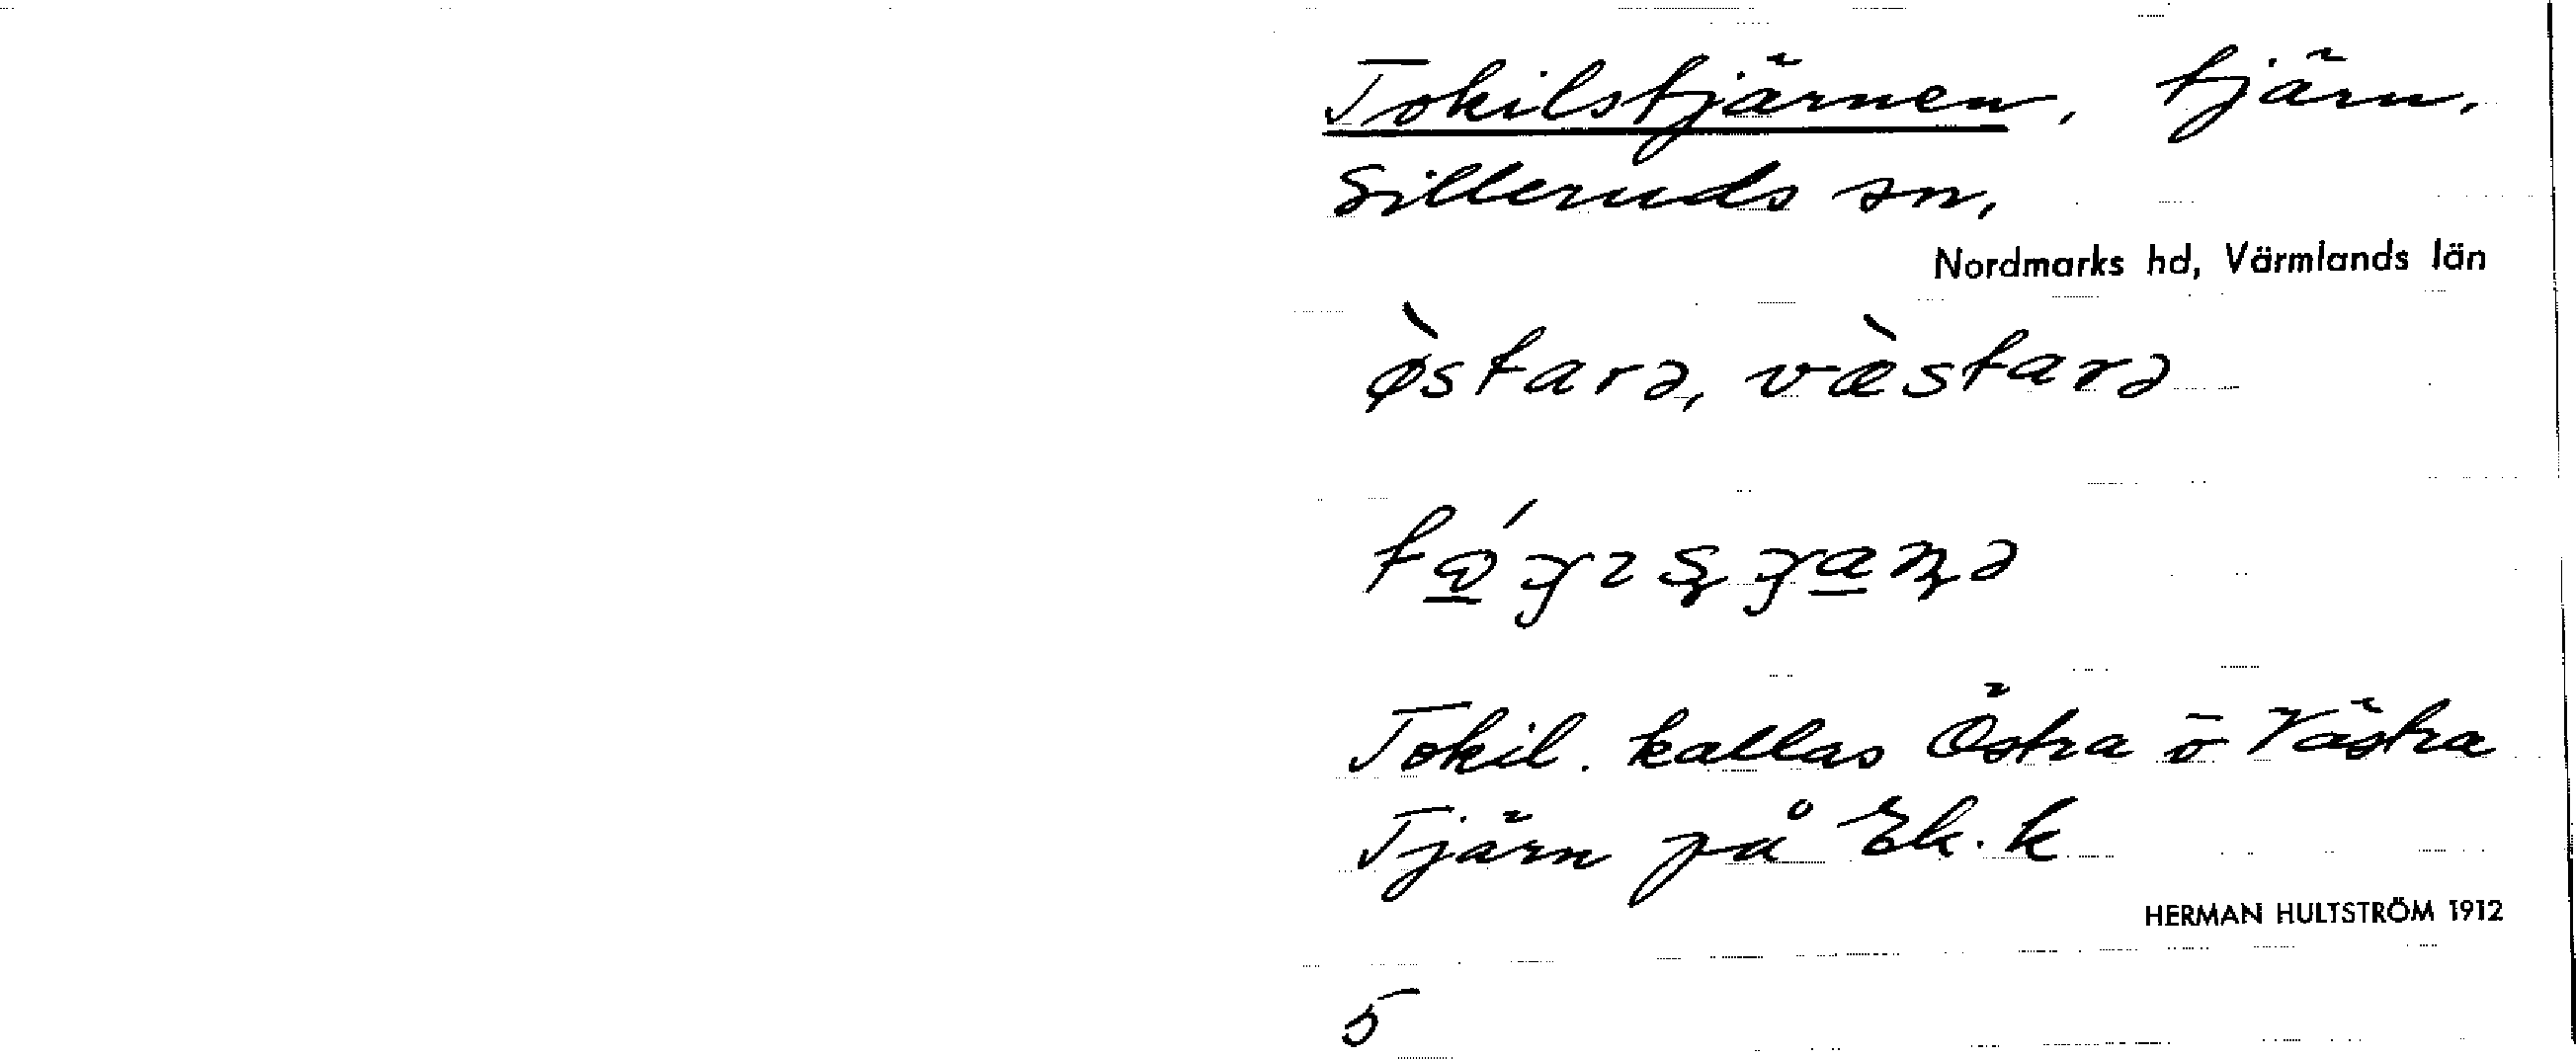 Tokilstjärnen, tjärn,
Silleruds sn,
Nordmarks hd, Värmlands län
ø̀starə, væ̀starə
Tokil. kallas Östra o Västra
Tjärn på Ek. k
HERMAN HULTSTRÖM 1912
5